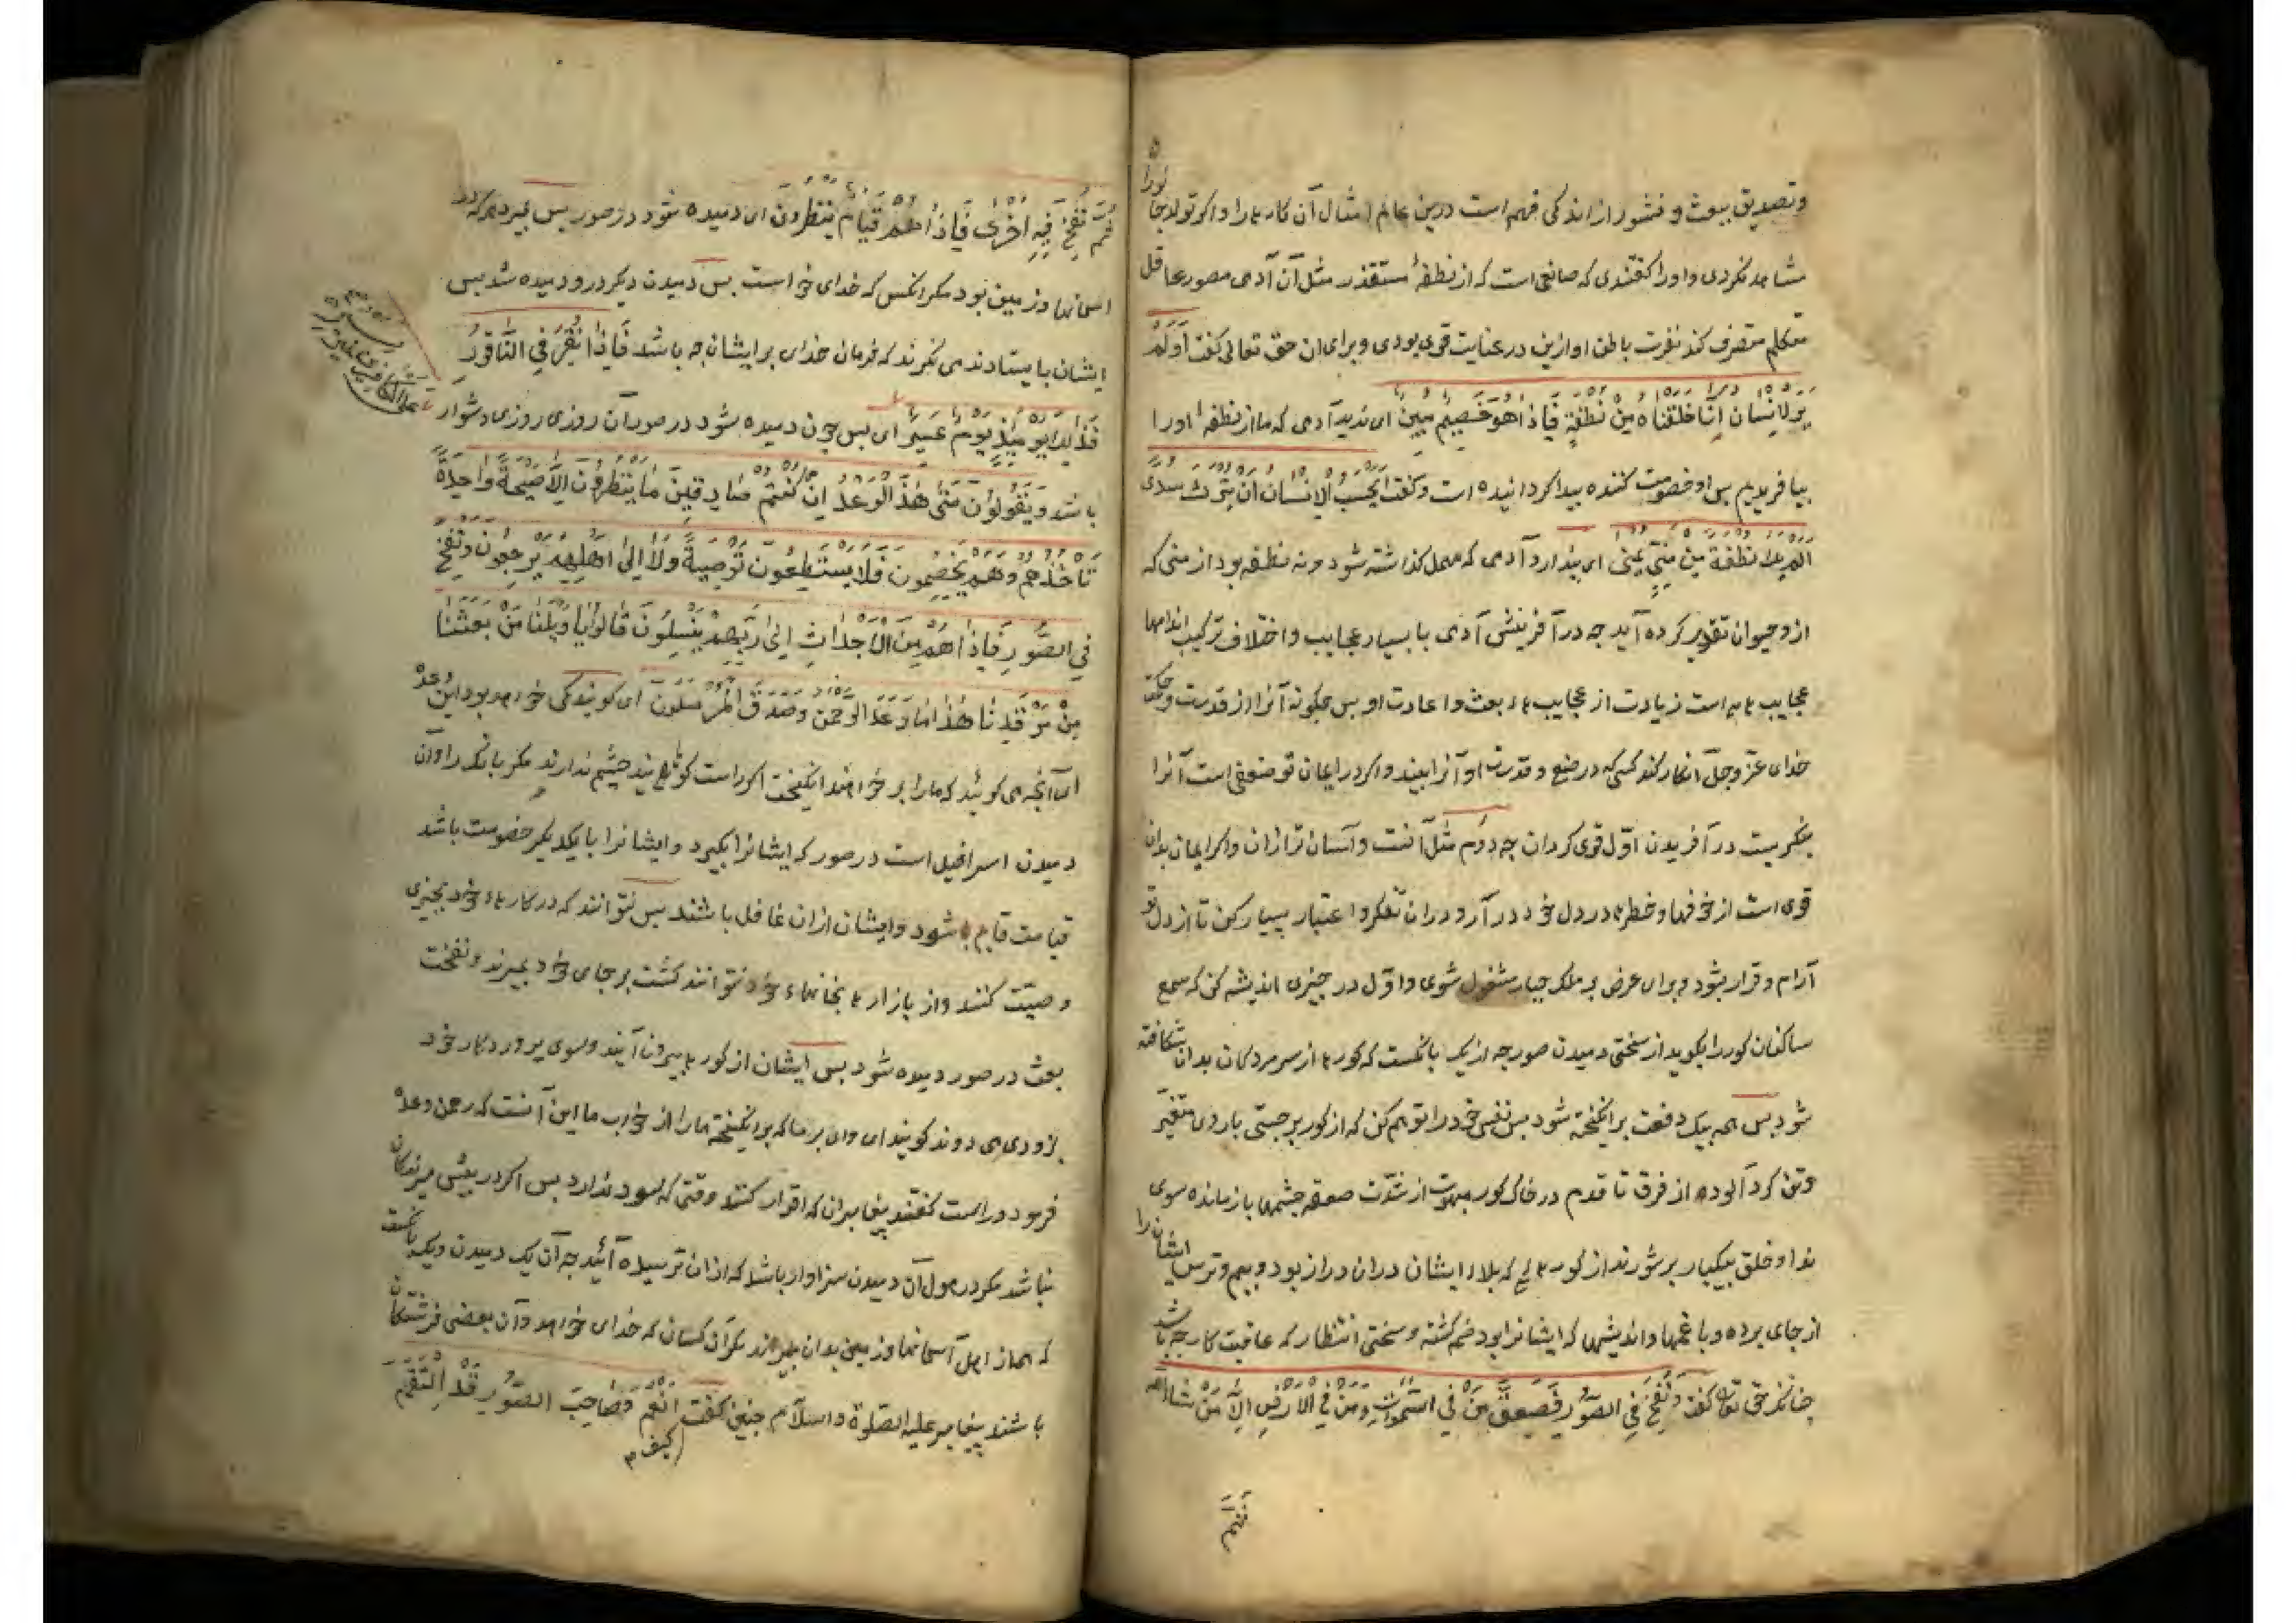 وتصدیق ببعث و نشور از اندکی فهم است درین عالم امثال آن کارها را و اکر تولد جانورانرا
مشاهده نکردی و او را کفتندی که صانعی است که از نطفهٔ مستقذر مثل آن آدمی مصور عاقل
متکلم متصرف کند نفرت باطن او ازین در غایت قوی بودی و برای ان حق تعالی کفت أَوَلَمْ
یَرَ لْاِنْسَان اَنَّا خَلَقْنَاه مِنْ نُطْفَةٍ فَاِذَا هُوَ خَصِیمٌ مُبِین ای ندید آدمی که ما از نطفه اورا
بیافریدیم بس او خصومت کننده بیدا کردانیده است و کفت اَیَحْسَبُ الْاِنْسَان اَن یُتْرَکَ سُدًی
الم یک نطفة مِن مَنِیٍّ یُمْنَی ای پندارد آدمی که مهمل کذاشته شود و نه نطفه بود از منی که
ازو حیوان تقدیر کرده آید چه در آفرینش آدمی با بسیار عجایب و اختلاف ترکیب اندامها
عجایب ها است زیادت از عجایب ها بعث و اعادت او بس چکونه آنرا از قدرت و حکمت
خدای عزّ و جلّ انکار کند کسی که در صنع و قدرت او آنرا بیند و اکر در ایمان تو ضعفی است آنرا
بنکریست در آفریدن اوّل قوی کردان چه دوم مثل آنست و آسان تر ازان و اکر ایمان بدان
قوی است از خوفها و خطرها در دل خود در آر و دران تفکر و اعتبار بسیار کن تا از دل تو
آرام و قرار بشود و برای عرض بر ملک جبار مشغول شوی و اوّل در چیزی اندیشه کن که سمع
ساکنان کور را بکوبد از سختی دمیدن صور چه از یک بانکست که کورها از سر مردکان بدان شکافته
شود بس همه بیک دفعت بر انکیخته شود بس نفس خود را توهم کن که از کور بر جستی با روی متغیّر
و تن کرد آلوده از فرق تا قدم در خاک کور مبهوت از شدّت صعقه چشمها باز مانده سوی
ندا و خلق بیکبار بر شورند از کورهای که بلاء ایشان دران دراز بود و بیم و ترس ایشان را
از جای برده و با غمها و اندیشها که ایشانرا بود ضم کشته و سختی انتظار که عاقبت کار چه باشد
چنانکه حق تعالی کفت وَنُفِخَ فِی الصُّورِ فَصَعِقَ مَنْ فِی السَّمٰوَاتِ وَمَنْ فِی الْاَرْضِ اِلَّا مَنْ شَاءَ اللّه
ثُمَّ نُفِخَ فِیهِ اُخْرٰی فَاِذَا هُمْ قِیَامٌ یَنْظُرُونَ ای دمیده شود در صور بس بمیرد هر که در
اسمانها و زمین بود مکر انکس که خدای خواست بس دمیدن دیکر درو دمیده شد بس
ایشان با یستادند می نکرند که فرمان خدای بر ایشان چه باشد فَاِذَا نُقِرَ فِی النَّاقُورِ
فَذٰلِکَ یَوْمَئِذٍ یَوْمٌ عَسِیرٌ ای بس چون دمیده شود در صور آن روزی روزی دشوار
علی الکافرین غیر یسیر
باشد وَیَقُولُونَ مَتٰی هٰذَا الْوَعْدُ اِنْ کُنْتُمْ صَادِقِینَ مَا یَنْظُرُونَ اِلَّا صَیْحَةً وَاحِدَةً
تَاْخُذُهُمْ وَهُمْ یَخِصِّمُونَ فَلَا یَسْتَطِیعُونَ تَوْصِیَةً وَلَا اِلٰی اَهْلِهِمْ یَرْجِعُونَ وَنُفِخَ
فِی الصُّورِ فَاِذَا هُمْ مِنَ الْاَجْدَاثِ اِلٰی رَبِّهِمْ یَنْسِلُونَ قَالُوا یَا وَیْلَنَا مَنْ بَعَثَنَا
مِنْ مَرْقَدِنَا هٰذَا مَا وَعَدَ الرَّحْمٰن وَصَدَقَ الْمُرْسَلُونَ ای کویند کی خواهد بود این وعده
ای آنچه می کوئید که ما را بر خواهند انکیخت اکر راست کوئید چشم ندارند مکر بانک را و آن
دمیدن اسرافیل است در صور که ایشانرا بکیرد و ایشانرا با یکدیکر خصومت باشد
قیامت قایم شود و ایشان ازان غافل باشند بس نتوانند که در کارهاء خود بچیزی
وصیّت کنند و از بازارها بخانهاء خود نتوانند کشت بر جای خود بمیرند و نفخت
بعث در صور دمیده شود بس ایشان از کورها بیرون آیند و سوی پروردکار خود
بزودی می دوند کویند ای وای بر ما که بر انکیخت ما را از خواب ما این آنست که رحمن وعده
فرمود و راست کفتند پیغامبران که اقرار کنند وقتی که سود ندارد بس اکر در پیش میرندکان
نباشد مکر در هول آن دمیدن سزاوار باشد که ازان ترسیده آیید چه آن یک دمیدن و یک بانکست
که همه از اهل آسمانها و زمین بدان بمیرند مکر آن کسان که خدای خواهد و آن بعضی فرشتکان
باشند پیغامبر علیه الصلوة والسلام چنین کفت کیف اَنْعَمُ وَصَاحِبُ الصُّورِ قَدِ الْتَقَمَ